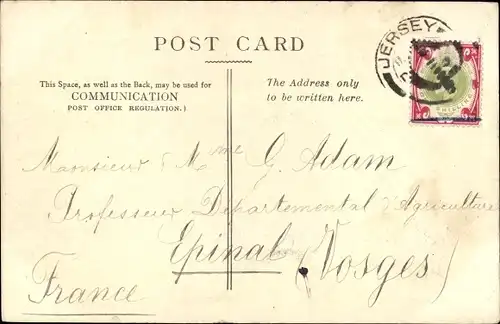 POST CARD
JERSEY
This Space, as well as the Back, may be used for
COMMUNICATION
POST OFFICE REGULATION.)
The Address only
to be written here.
SHILLING
Monsieur & Mme G. Adam
Professeur Départemental d'Agriculture
Epinal (Vosges)
France